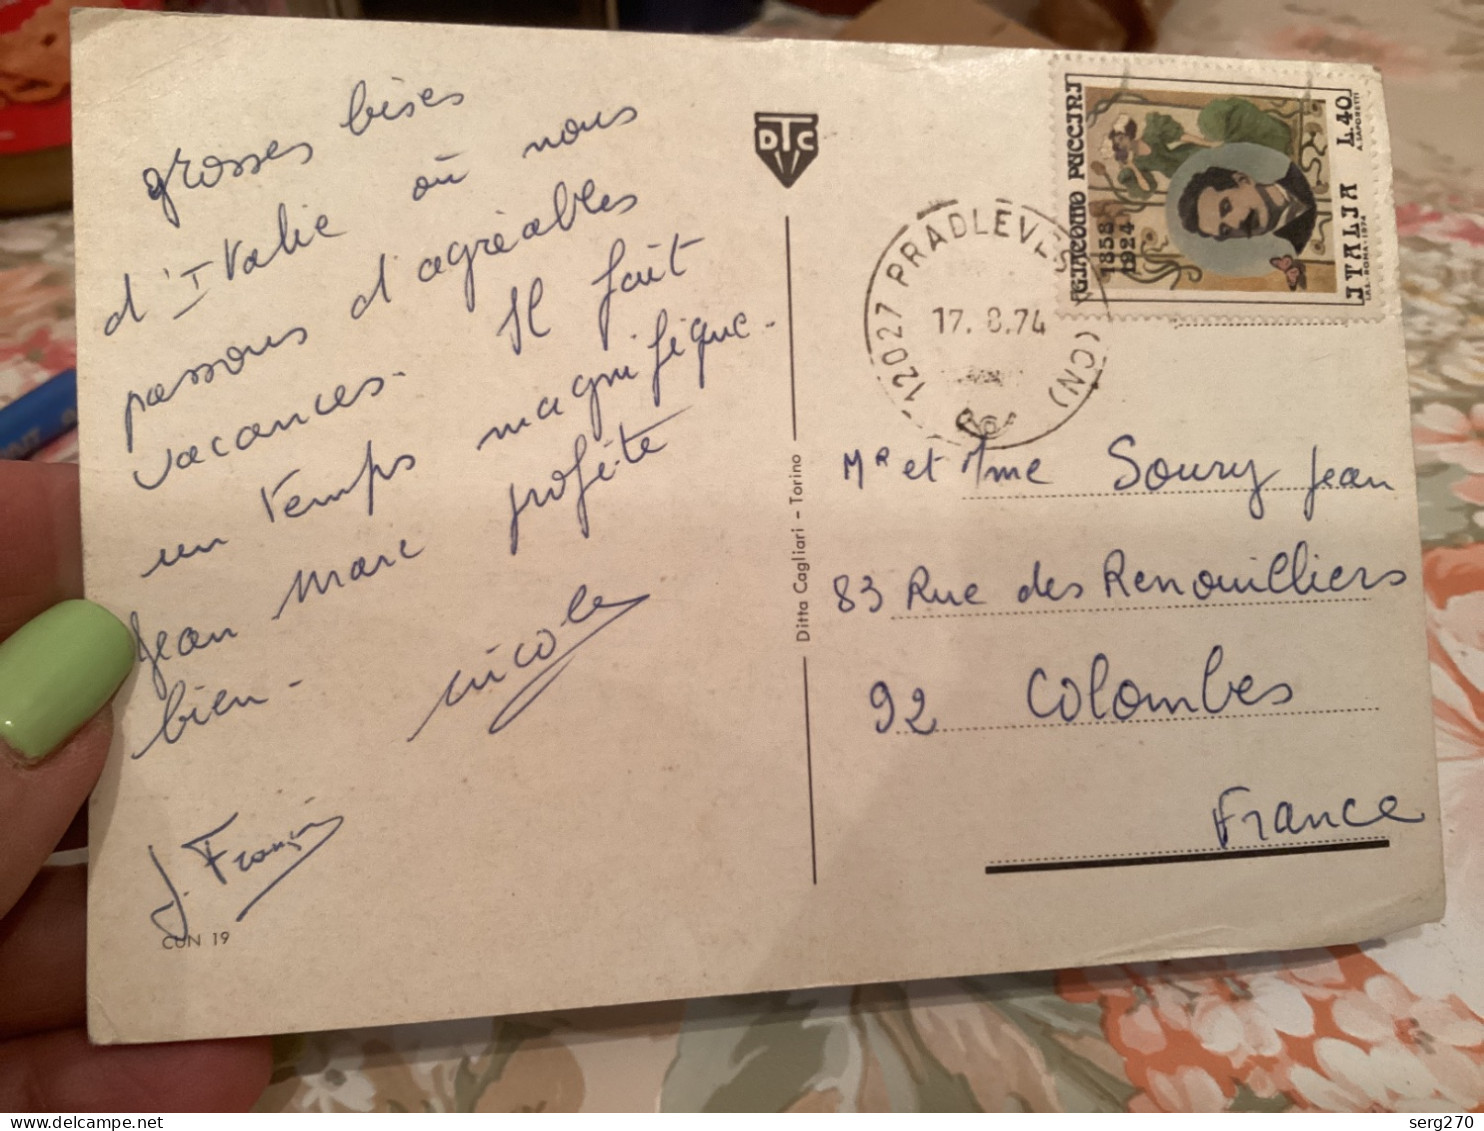 grosses bises
d'Italie où nous
passons d'agréables
vacances. Il fait
un temps magnifique.
Jean Marc profite
bien.
Nicole
J. François
CUN 19
DTC
Ditta Cagliari - Torino
12027 PRADLEVES (CN)
17. 8.74
GIACOMO PUCCINI
1858
1924
ITALIA L.40
I.P.S.-ROMA-1974 A.SAPORETTI
Mr et Mme Soury Jean
83 Rue des Renouilliers
92 Colombes
France
serg270